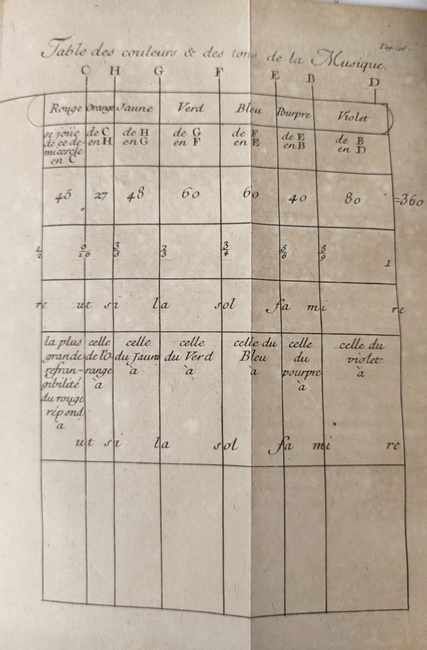 Table des couleurs & des tons de la Musique.
C H G F E B D
Rouge Orangé Jaune Verd Bleu Pourpre Violet
de C en H
de H en G
de G en F
de F en E
de E en B
de B en D
45 27 48 60 60 40 80 =360
1
re ut si la sol fa mi re
la plus grande refran-gibilité du rouge répond à
celle de l'O-range à
celle du Jaune à
celle du Verd à
celle du Bleu à
celle du pourpre à
celle du violet à
ut si la sol fa mi re